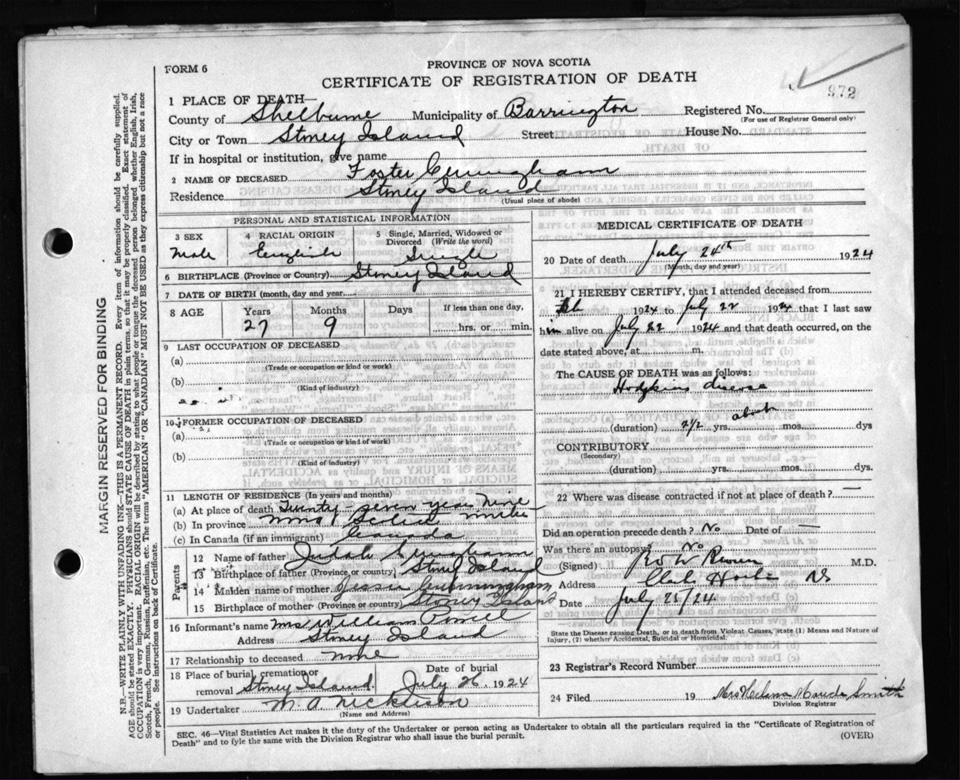 FORM 6
PROVINCE OF NOVA SCOTIA
CERTIFICATE OF REGISTRATION OF DEATH
972
1 PLACE OF DEATH—
County of Shelburne Municipality of Barrington Registered No.
(For use of Registrar General only)
City or Town Stoney Island Street House No.
If in hospital or institution, give name
2 NAME OF DECEASED Foster Cunningham
Residence Stoney Island
(Usual place of abode)
PERSONAL AND STATISTICAL INFORMATION
3 SEX 4 RACIAL ORIGIN 5 Single, Married, Widowed or Divorced (Write the word)
Male English Single
6 BIRTHPLACE (Province or Country) Stoney Island
7 DATE OF BIRTH (month, day and year)
8 AGE Years Months Days If less than one day,
27 9 hrs. or min.
9 LAST OCCUPATION OF DECEASED
(a)
(Trade or occupation or kind of work)
(b)
(Kind of industry)
10 FORMER OCCUPATION OF DECEASED
(a)
(Trade or occupation or kind of work)
(b)
(Kind of industry)
11 LENGTH OF RESIDENCE (In years and months)
(a) At place of death Twenty-seven years nine
(b) In province Nova Scotia
(c) In Canada (if an immigrant) Canada
Parents
12 Name of father Judah Cunningham
13 Birthplace of father (Province or country) Stoney Island
14 Maiden name of mother Jessie Cunningham
15 Birthplace of mother (Province or country) Stoney Island
16 Informant's name Mrs William
Address Stoney Island
17 Relationship to deceased none
18 Place of burial, cremation or removal Stoney Island Date of burial July 26 1924
19 Undertaker M. A. Nickerson
(Name and Address)
MEDICAL CERTIFICATE OF DEATH
20 Date of death July 24th 1924
(Month, day and year)
21 I HEREBY CERTIFY, that I attended deceased from
Feb 1924 to July 22 1924 that I last saw
him alive on July 22 1924 and that death occurred, on the
date stated above, at m.
The CAUSE OF DEATH was as follows:
Hodgkins disease
about
(duration) 2 1/2 yrs. mos. dys.
CONTRIBUTORY
(Secondary)
(duration) yrs. mos. dys.
22 Where was disease contracted if not at place of death? —
Did an operation precede death? No Date of —
Was there an autopsy? No
(Signed) M.D.
Address NS
Date July 25/24
State the Disease causing Death, or in death from Violent Causes, state (1) Means and Nature of
Injury, (2) whether Accidental, Suicidal or Homicidal.
23 Registrar's Record Number
24 Filed 19 Mrs Maude Smith
Division Registrar
SEC. 46—Vital Statistics Act makes it the duty of the Undertaker or person acting as Undertaker to obtain all the particulars required in the "Certificate of Registration of
Death" and to fyle the same with the Division Registrar who shall issue the burial permit. (OVER)
MARGIN RESERVED FOR BINDING
N.B.—WRITE PLAINLY WITH UNFADING INK—THIS IS A PERMANENT RECORD. Every item of information should be carefully supplied.
AGE should be stated EXACTLY. PHYSICIANS should STATE CAUSE OF DEATH in plain terms, so that it may be properly classified. Exact statement of
OCCUPATION is very important. RACIAL ORIGIN will be described by stating to what people or tongue the deceased person belonged whether English, Irish,
Scotch, French, German, Russian, Ruthenian, etc. The terms "AMERICAN" OR "CANADIAN" MUST NOT BE USED as they express citizenship but not a race
or people. See instructions on back of Certificate.